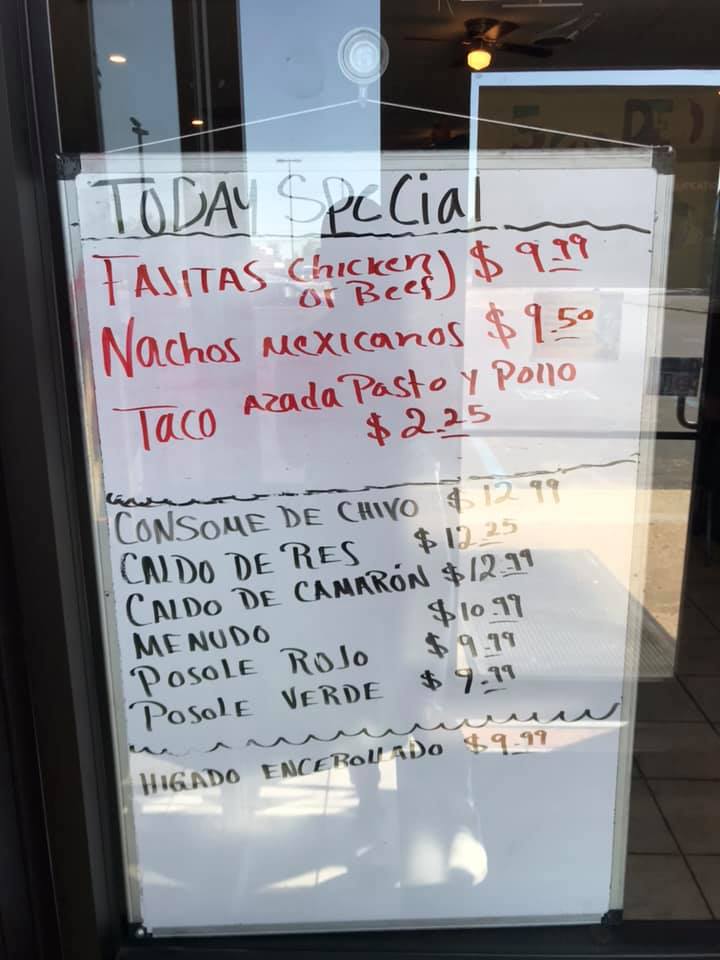 TODAY SPECial
FAJITAS (Chicken or Beef) $ 9.99
Nachos Mexicanos $ 9.50
Taco Azada Pasto y Pollo
$ 2.25
CONSOME DE CHIVO $ 12.99
CALDO DE RES $ 12.25
CALDO DE CAMARÓN $ 12.99
MENUDO $ 10.99
POSOLE ROJO $ 9.99
POSOLE VERDE $ 9.99
HIGADO ENCEBOLLADO $ 9.99